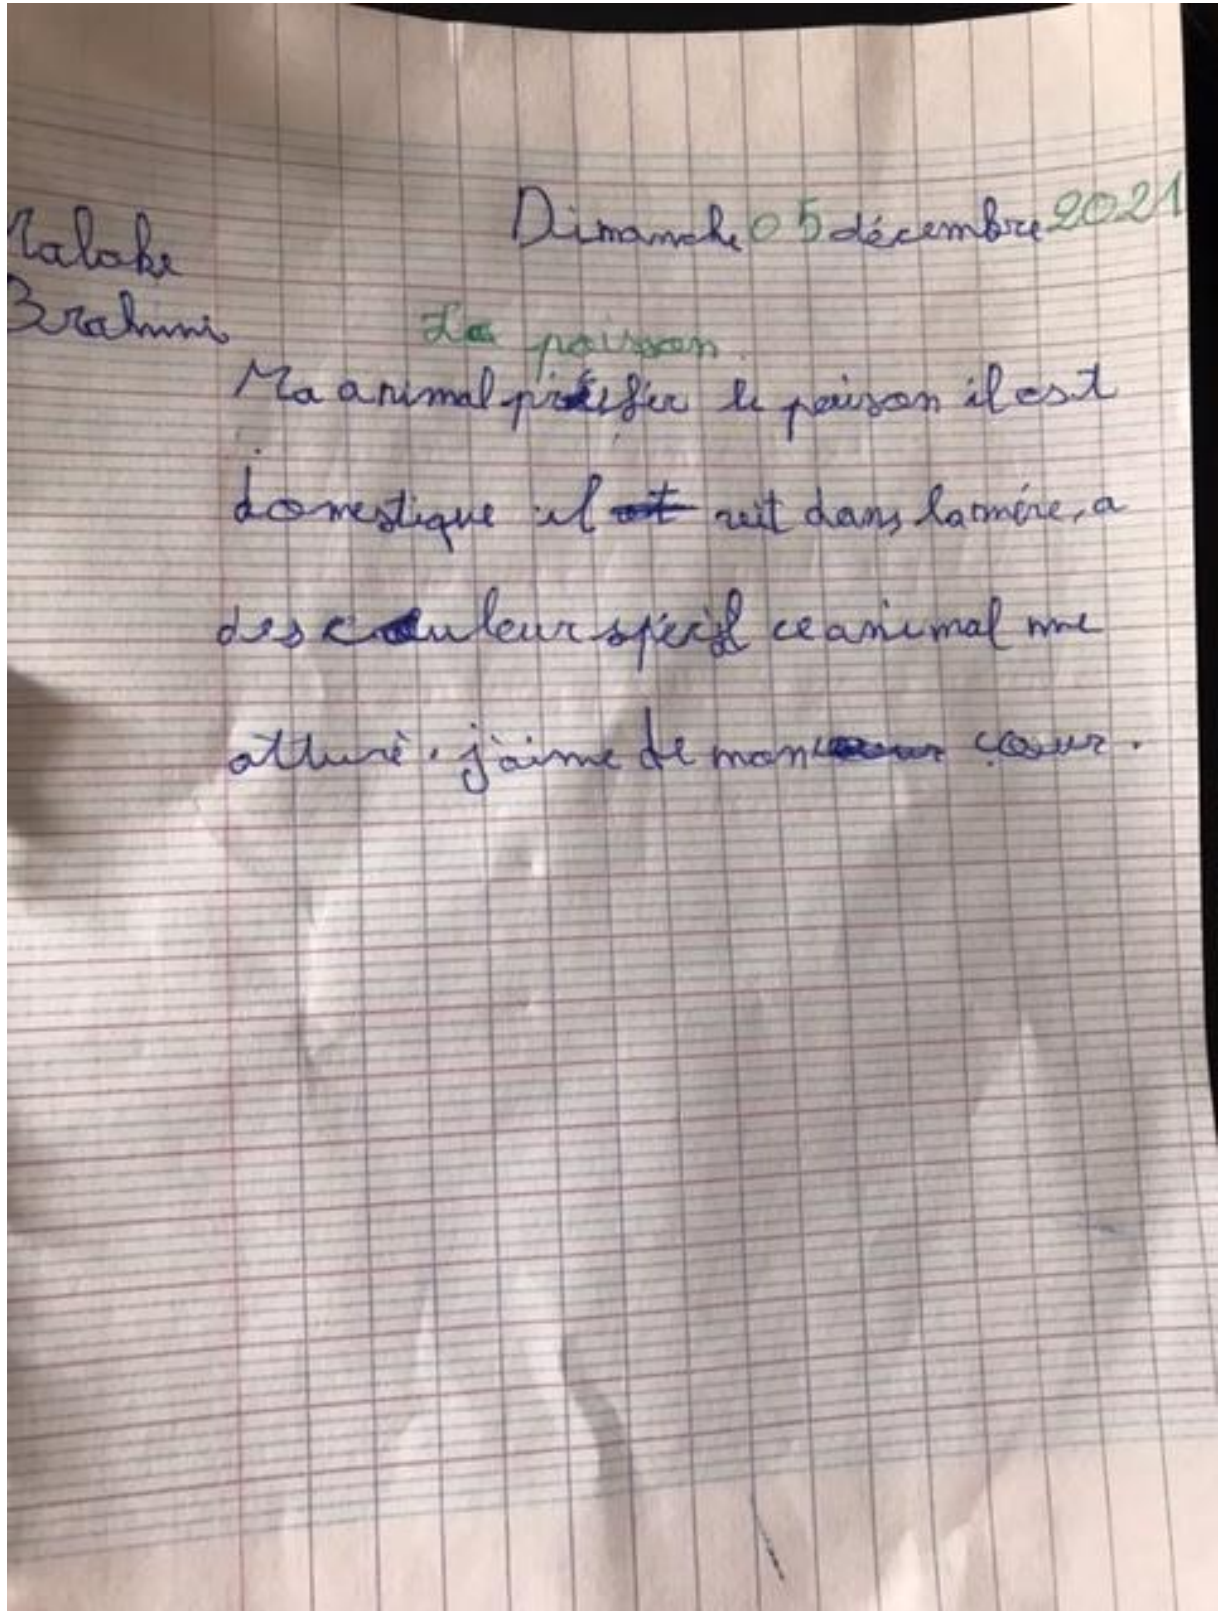 Dimanche 05 décembre 2021
Malake
Brahmi
Le poisson.
Ma animal préifér le poison il est
domestique il vit dans la mére, a
des couleur spécil ce animal me
atturé. j'aime de mon cœur.